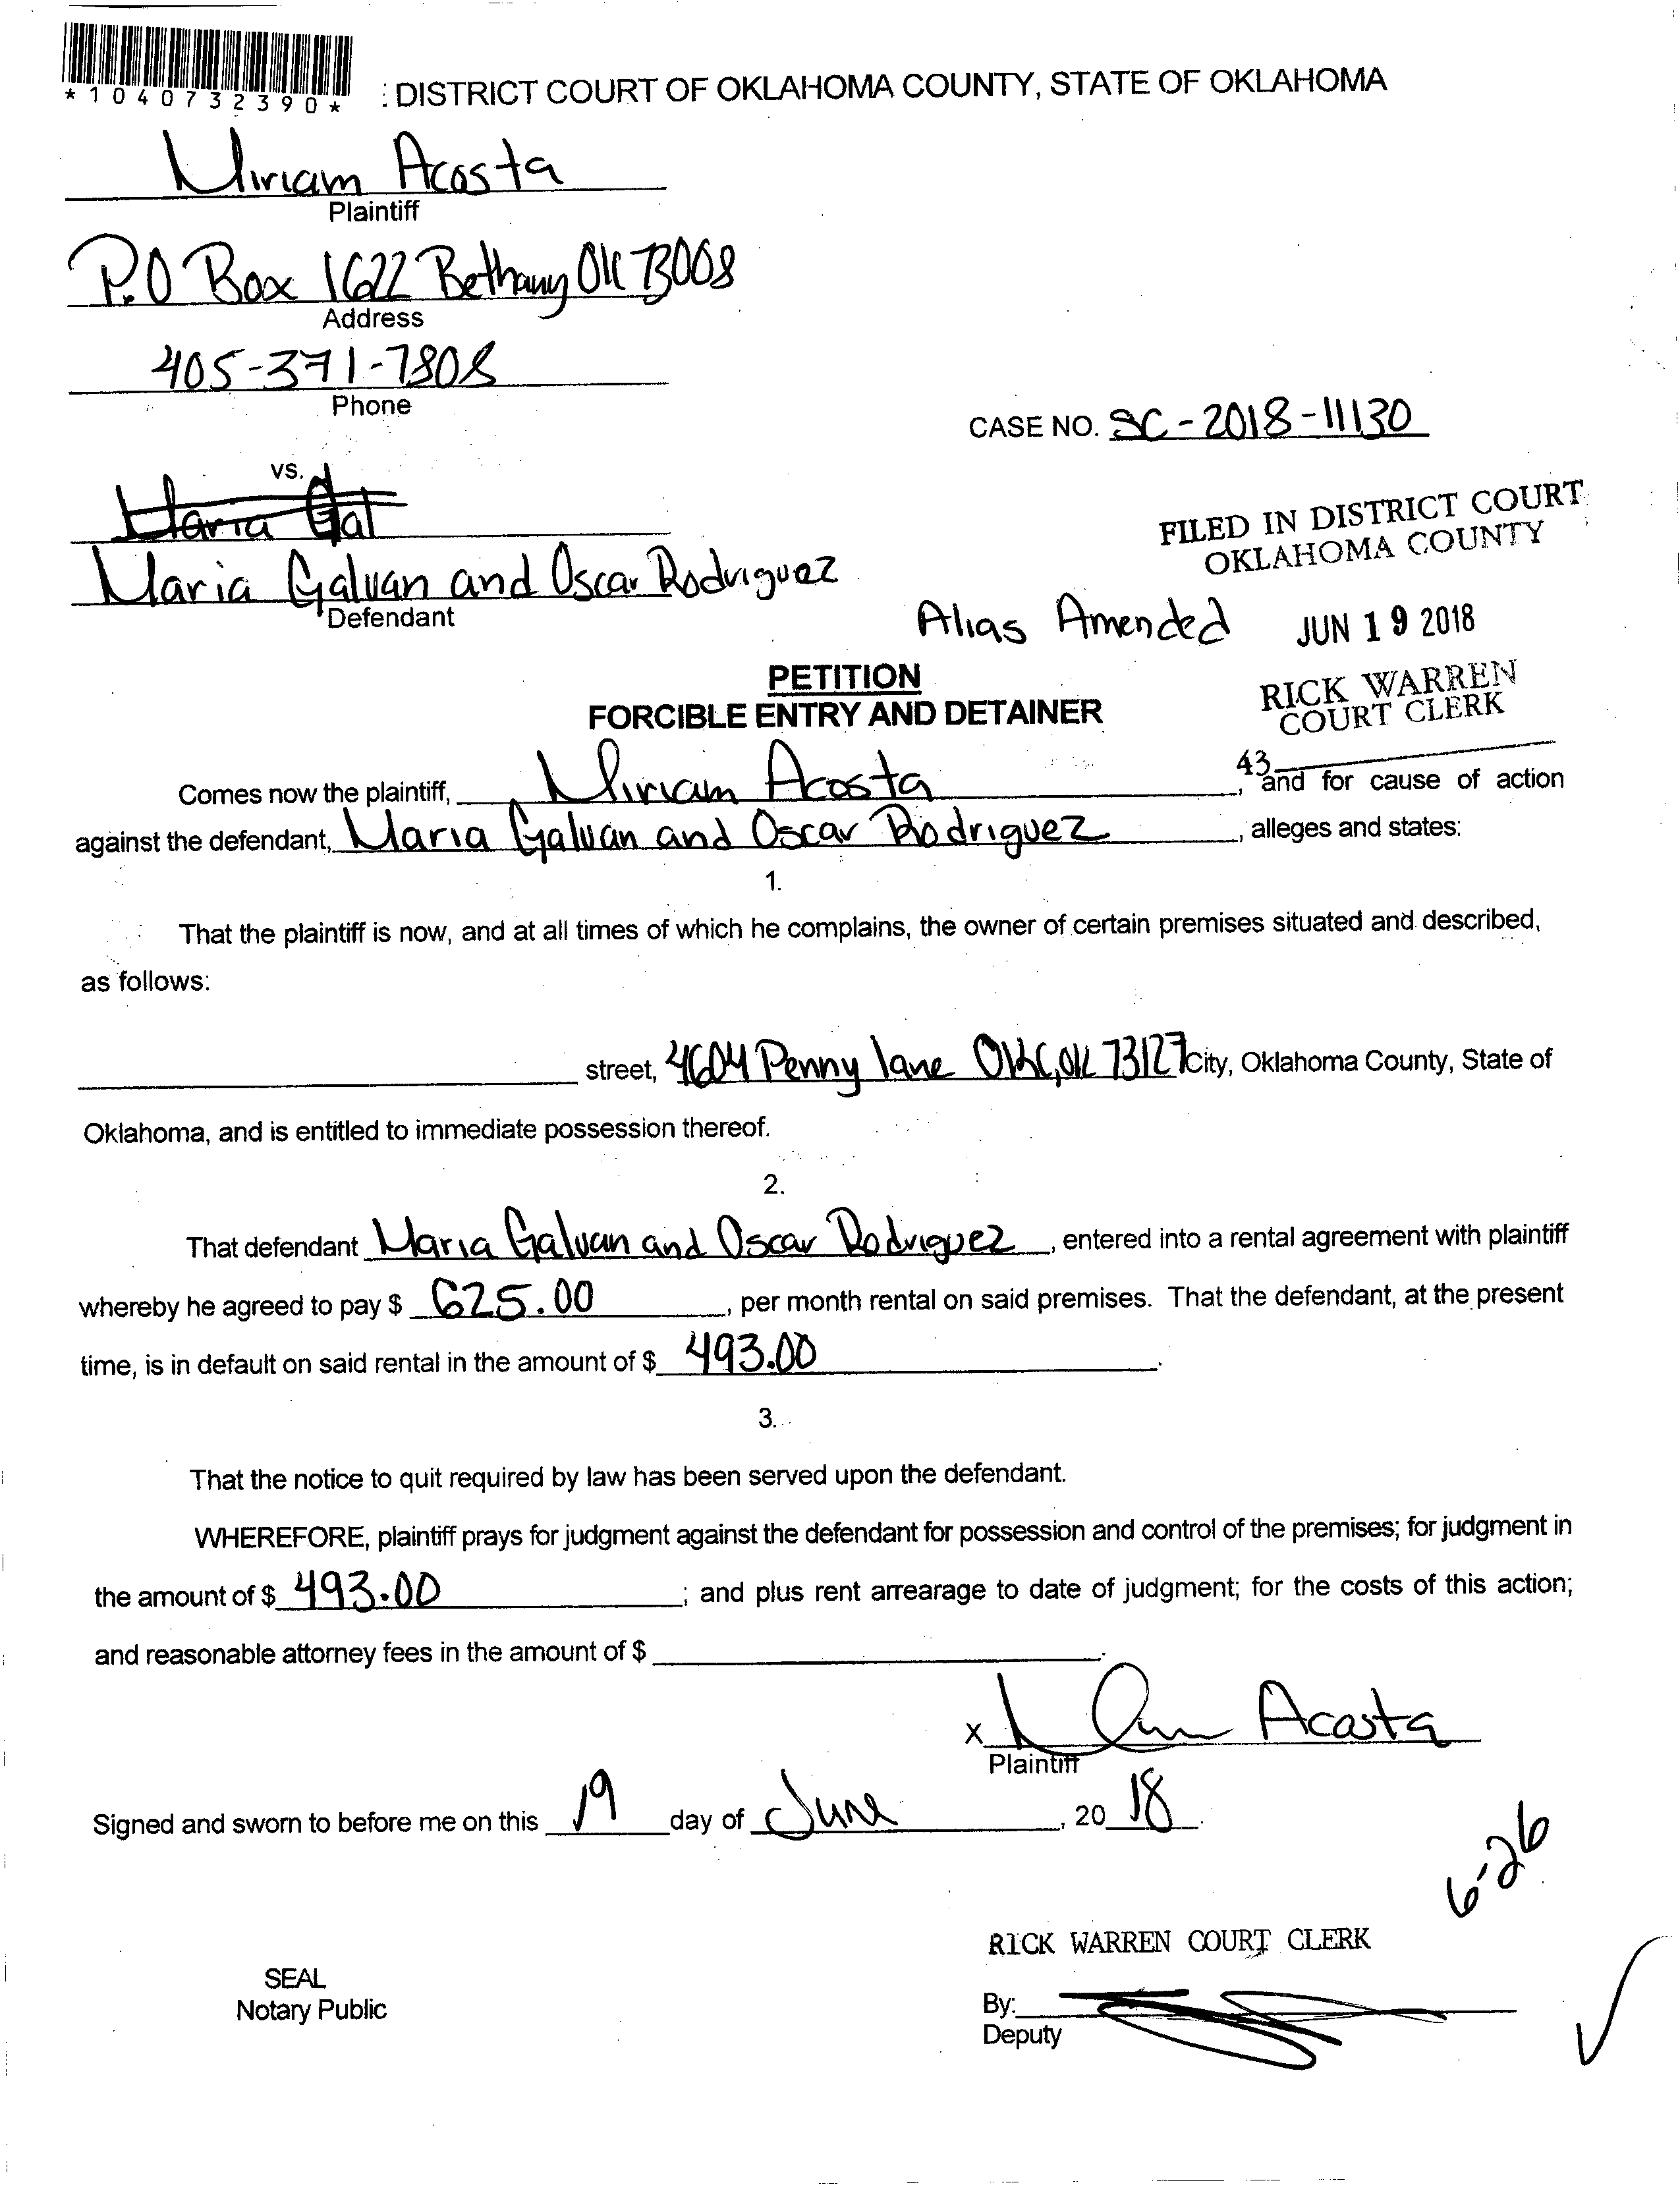 *1040732390*
: DISTRICT COURT OF OKLAHOMA COUNTY, STATE OF OKLAHOMA
Miriam Acosta
Plaintiff
P.O Box 1622 Bethany OK 73008
Address
405-371-7808
Phone
CASE NO. SC-2018-11130
vs.
Maria Gal
Maria Galvan and Oscar Rodriguez
Defendant
FILED IN DISTRICT COURT
OKLAHOMA COUNTY
Alias Amended
JUN 19 2018
PETITION
FORCIBLE ENTRY AND DETAINER
RICK WARREN
COURT CLERK
43
Comes now the plaintiff, Miriam Acosta, and for cause of action
against the defendant, Maria Galvan and Oscar Rodriguez, alleges and states:
1.
That the plaintiff is now, and at all times of which he complains, the owner of certain premises situated and described,
as follows:
street, 4604 Penny lane OKC, OK 73127 City, Oklahoma County, State of
Oklahoma, and is entitled to immediate possession thereof.
2.
That defendant Maria Galvan and Oscar Rodriguez, entered into a rental agreement with plaintiff
whereby he agreed to pay $ 625.00, per month rental on said premises. That the defendant, at the present
time, is in default on said rental in the amount of $ 493.00.
3.
That the notice to quit required by law has been served upon the defendant.
WHEREFORE, plaintiff prays for judgment against the defendant for possession and control of the premises; for judgment in
the amount of $ 493.00; and plus rent arrearage to date of judgment; for the costs of this action;
and reasonable attorney fees in the amount of $ .
X Acosta
Plaintiff
Signed and sworn to before me on this 19 day of June, 2018.
6-26
RICK WARREN COURT CLERK
SEAL
Notary Public
By:
Deputy